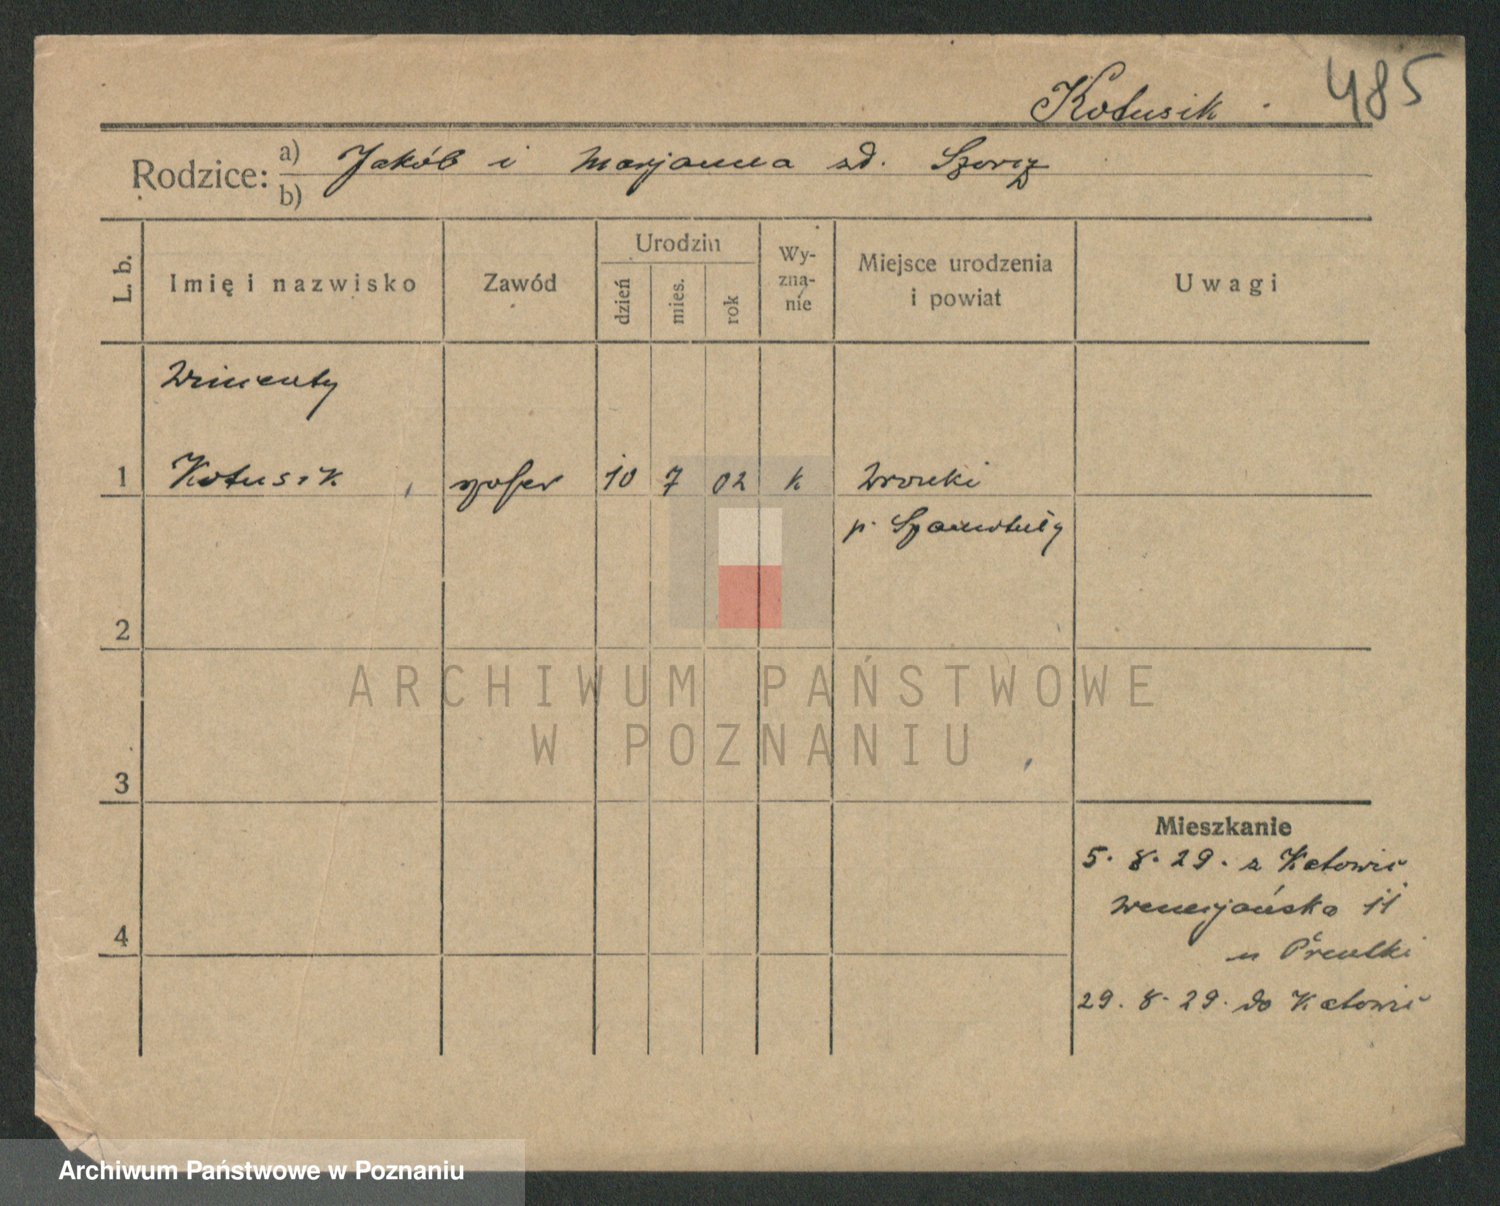 Kotusik . 485
Rodzice: a) Jakób i Marjanna zd.
b)
L. b.
Imię i nazwisko
Zawód
Urodzin
dzień
mies.
rok
Wy-
zna-
nie
Miejsce urodzenia
i powiat
Uwagi
Wincenty
1 Kotusik szofer 10 7 02 k Wronki
p. Szamotuły
2
ARCHIWUM PAŃSTWOWE
W POZNANIU
3
Mieszkanie
5. 8. 29. z Katowic
11
4
u
29. 8. 29. do Katowic
Archiwum Państwowe w Poznaniu